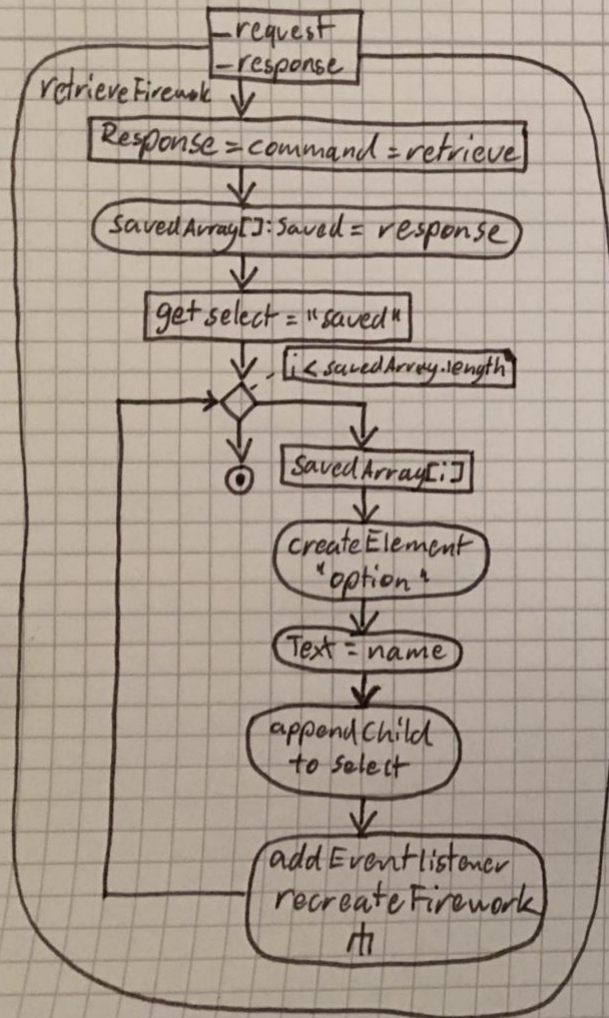 -request
-response
retrieveFirework
Response = command = retrieve
savedArray[]: Saved = response
get select = "saved"
i < savedArray.length
savedArray[i]
createElement
"option"
Text = name
appendChild
to select
addEventlistener
recreateFirework